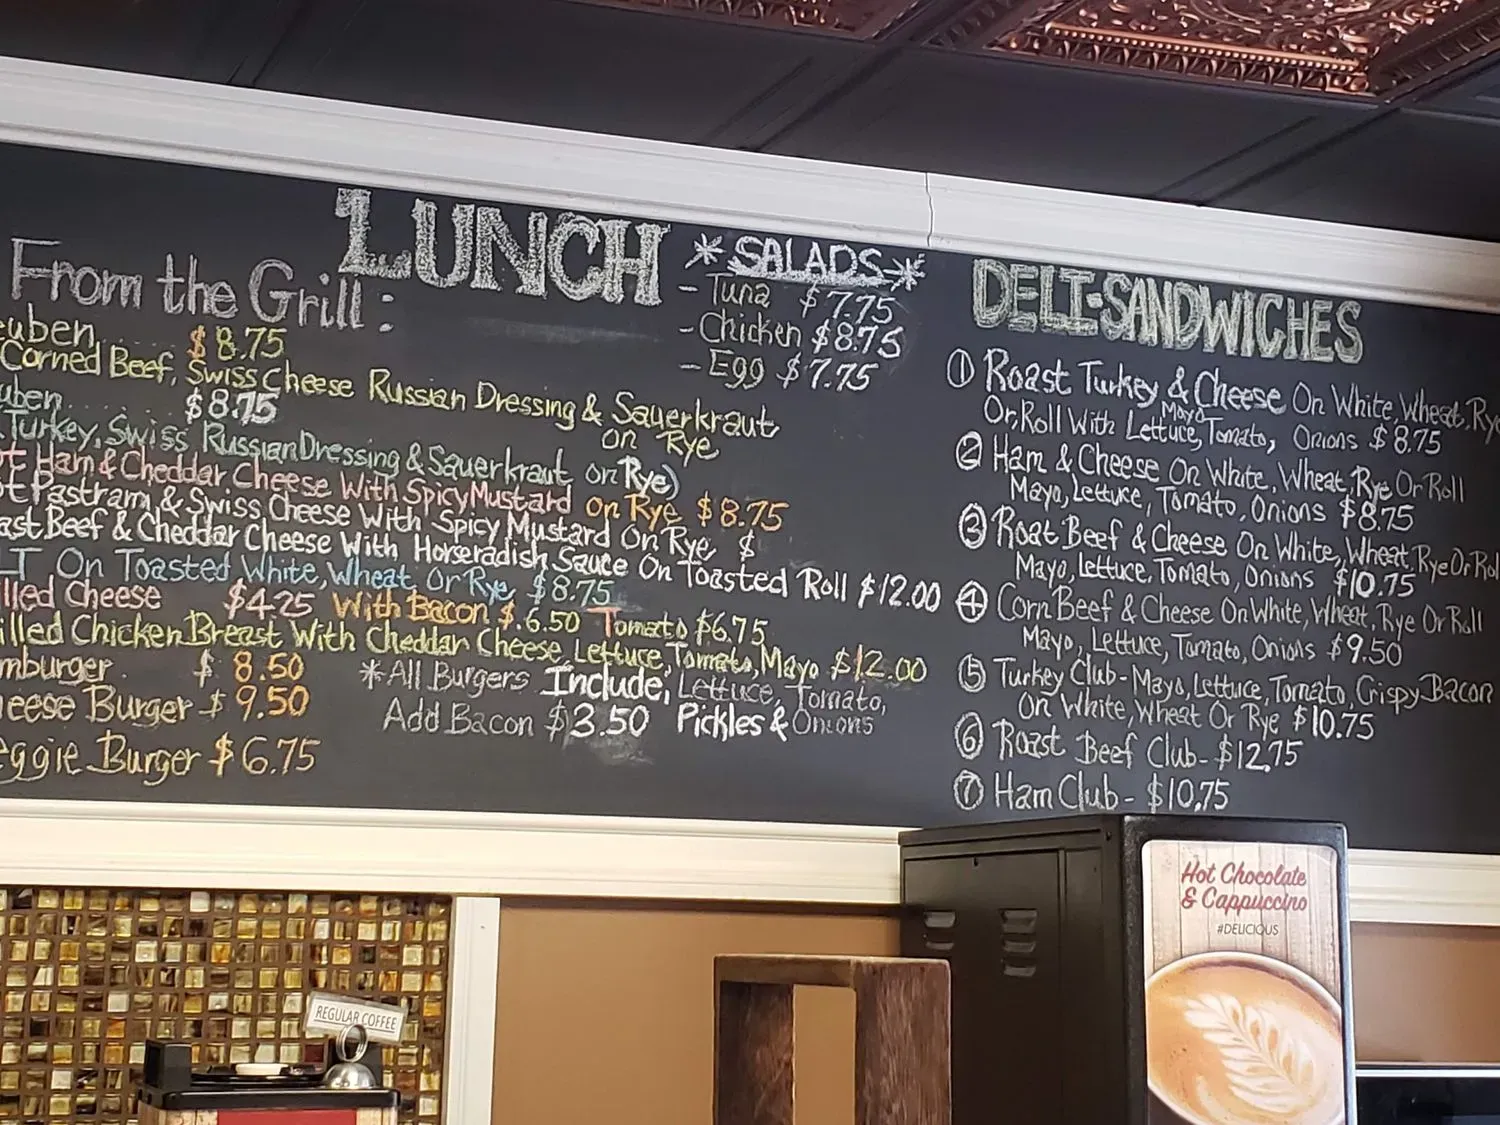 LUNCH
From the Grill:
euben $8.75
Corned Beef, Swiss Cheese Russian Dressing & Sauerkraut
on Rye
uben $8.75
Turkey, Swiss Russian Dressing & Sauerkraut on Rye)
ot Ham & Cheddar Cheese With Spicy Mustard on Rye $8.75
ot Pastrami & Swiss Cheese With Spicy Mustard On Rye, $
ast Beef & Cheddar Cheese With Horseradish Sauce On Toasted Roll $12.00
LT On Toasted White, Wheat, Or Rye, $8.75
illed Cheese $4.25 With Bacon $.6.50 Tomato $6.75
illed Chicken Breast With Cheddar Cheese, Lettuce, Tomato, Mayo $12.00
mburger $ 8.50
eese Burger $ 9.50
eggie Burger $6.75
*All Burgers Include, Lettuce, Tomato,
Pickles & Onions
Add Bacon $3.50
*SALADS*
- Tuna $7.75
- Chicken $8.75
- Egg $7.75
DELI-SANDWICHES
① Roast Turkey & Cheese On White, Wheat, Rye
Or, Roll With Lettuce, Mayo Tomato, Onions $8.75
② Ham & Cheese On White, Wheat, Rye Or Roll
Mayo, Lettuce, Tomato, Onions $8.75
③ Roat Beef & Cheese On White, Wheat, Rye Or Rol
Mayo, Lettuce, Tomato, Onions $10.75
④ Corn Beef & Cheese On White, Wheat, Rye Or Roll
Mayo, Lettuce, Tomato, Onions $9.50
⑤ Turkey Club - Mayo, Lettuce, Tomato, Crispy Bacon
On White, Wheat Or Rye $10.75
⑥ Roast Beef Club - $12.75
⑦ Ham Club - $10.75
Hot Chocolate
& Cappuccino
#DELICIOUS
REGULAR COFFEE